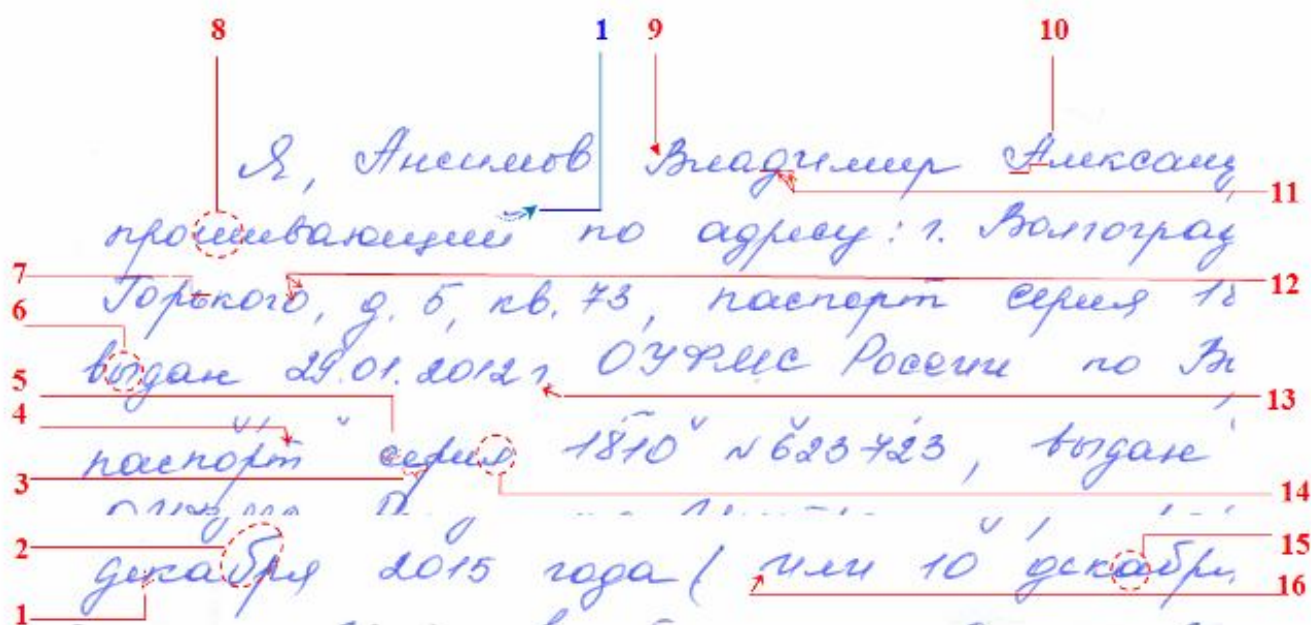 8 1 9 10
Я, Ансимов Владимир Александ
11
проживающий по адресу: г. Волгоград
7 12
Горького, д. 5, кв. 73, паспорт серия 18
6
выдан 29.01.2012г, ОУФМС России по В
5 13
4
паспорт серия 1810 №623723, выдан
3 14
2 15
декабря 2015 года ( или 10 декабр
1 16